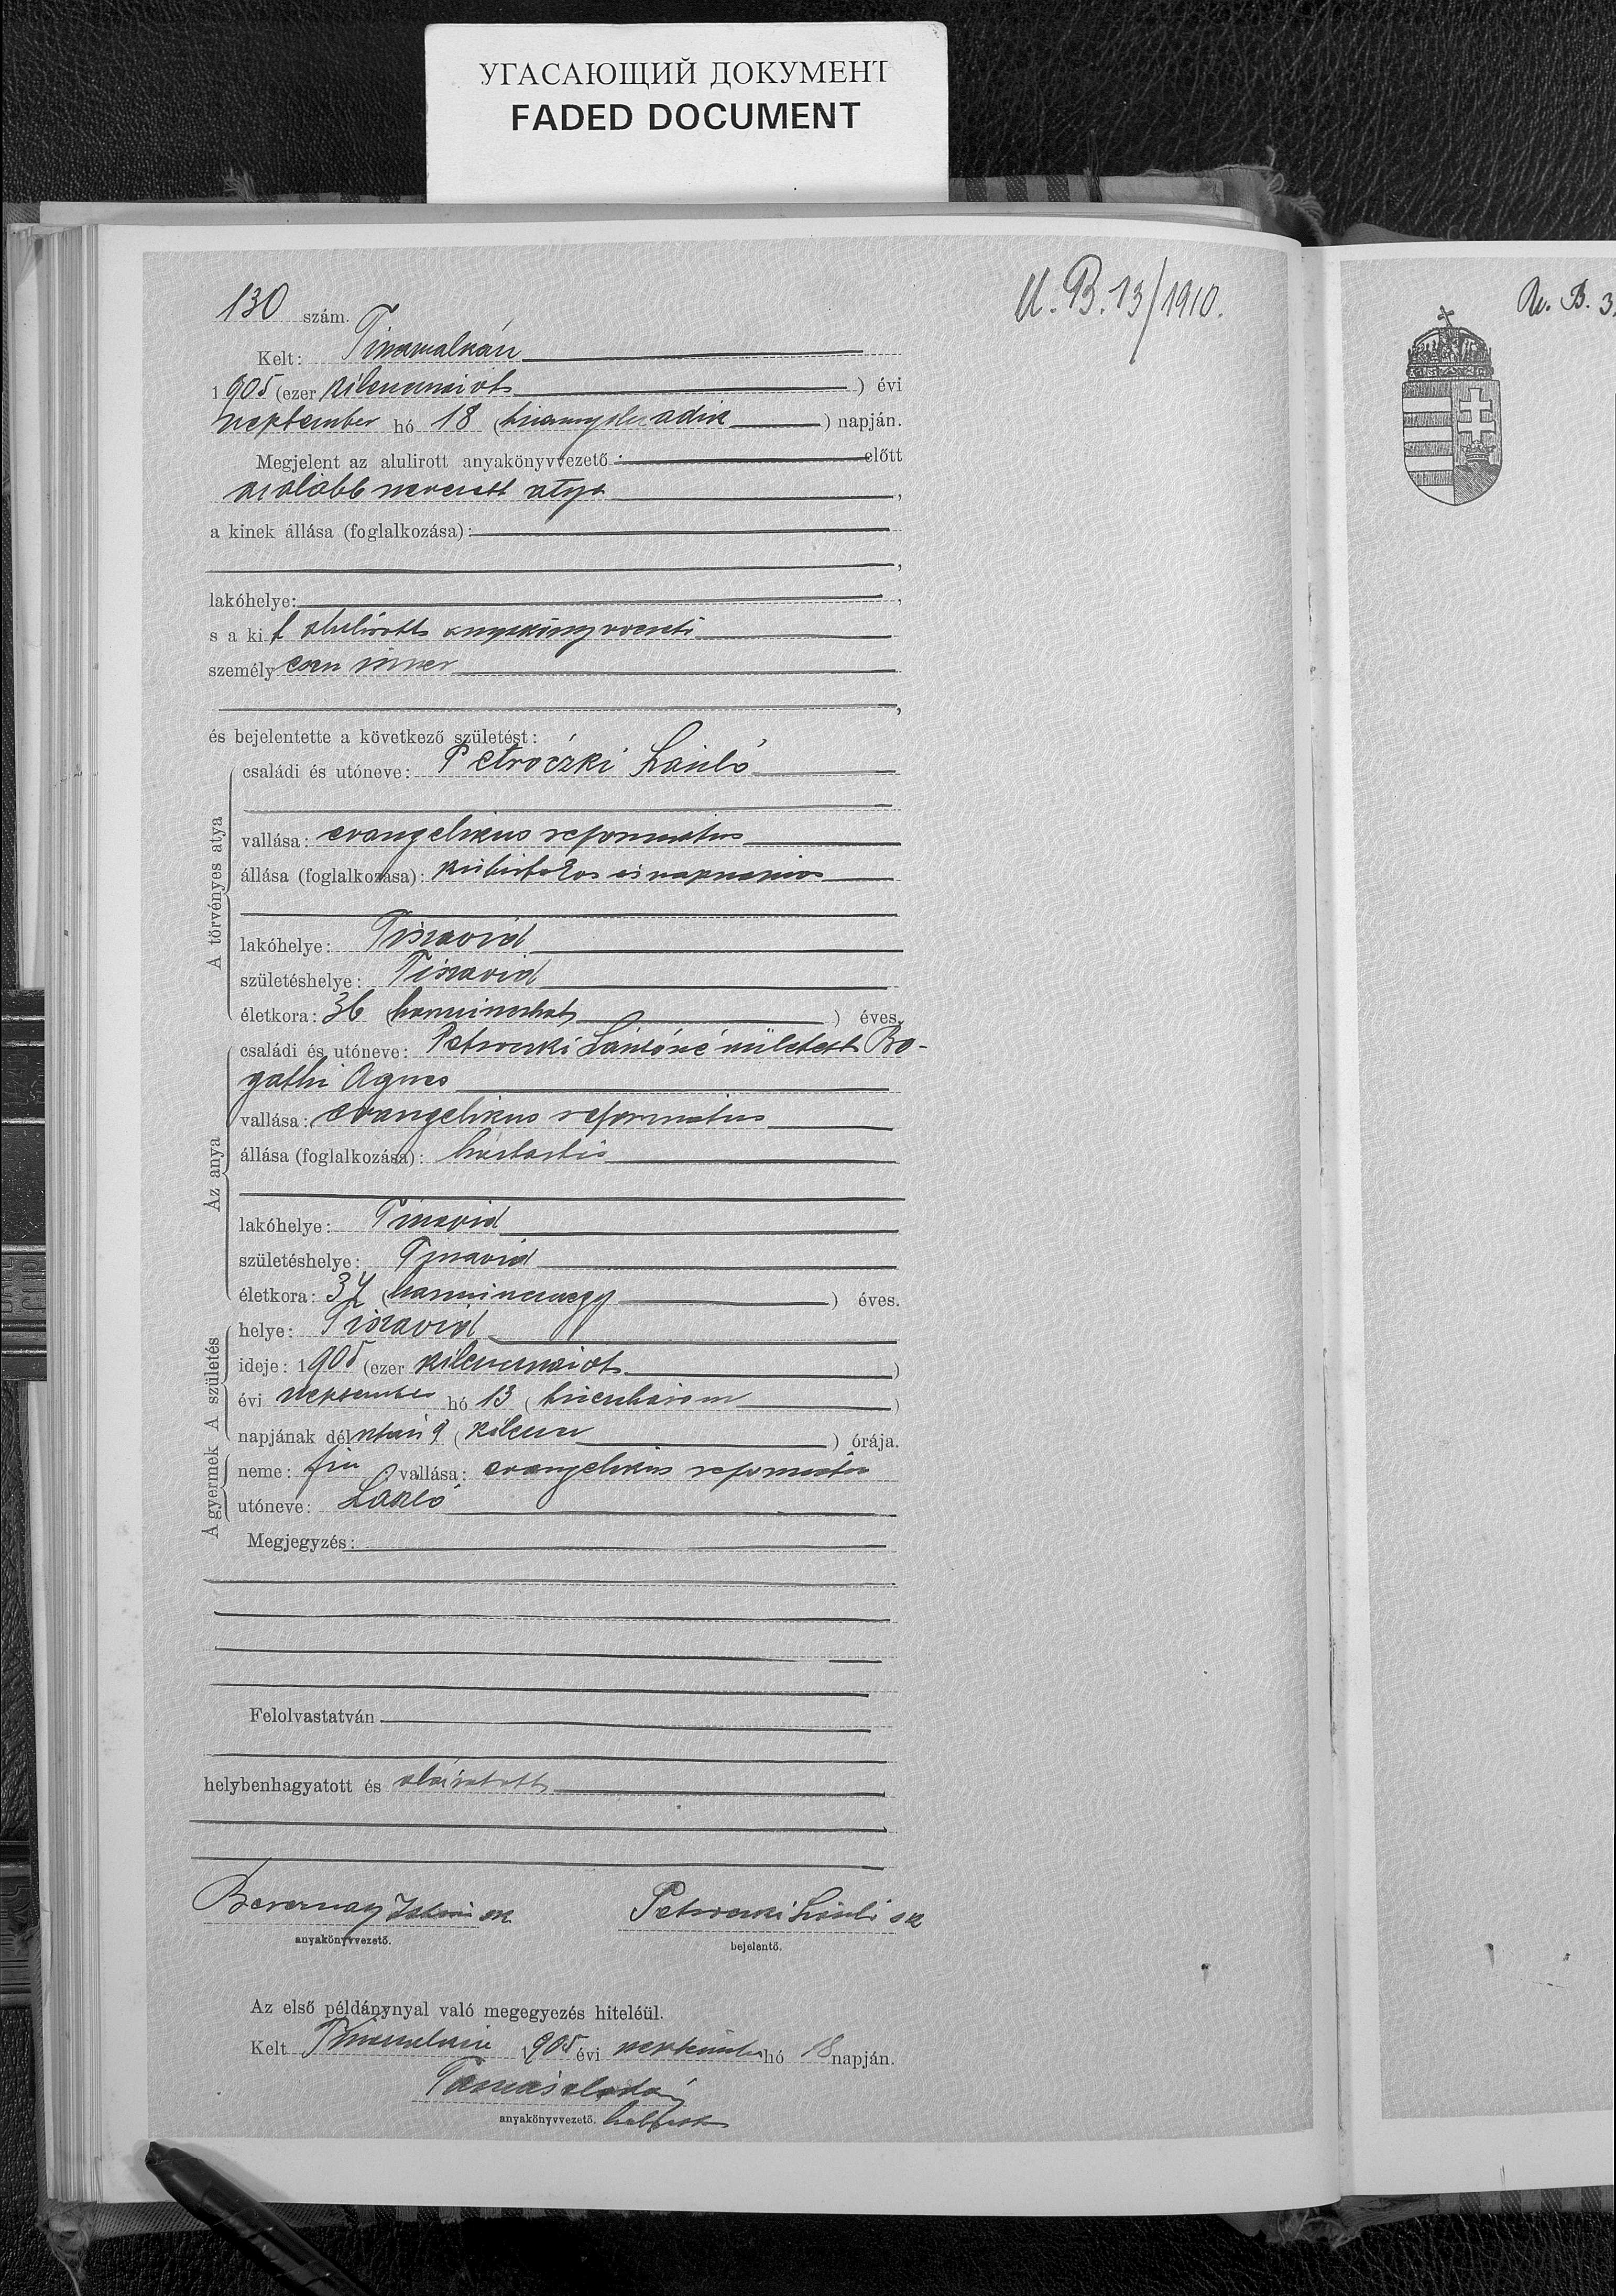 УГАСАЮЩИЙ ДОКУМЕНТ
FADED DOCUMENT
U. B. 13/1910.
130 szám.
Kelt:
1905 (ezer kilenczszázöt) évi
szeptember hó 18 (tizennyolczadik) napján.
Megjelent az alulirott anyakönyvvezető előtt
az alább nevezett atya,
a kinek állása (foglalkozása):
lakóhelye:
s a kit alulirott anyakönyvvezető
személyesen ismer
és bejelentette a következő születést:
A törvényes atya
családi és utóneve: Petróczki László
vallása: evangelikus református
állása (foglalkozása): kisbirtokos és napszámos
lakóhelye: Tiszavid
születéshelye: Tiszavid
életkora: 36 (harminczhat) éves.
Az anya
családi és utóneve: Petroczki Lászlóné született Bo-
gathi Agnes
vallása: evangelikus református
állása (foglalkozása): háztartás
lakóhelye: Tiszavid
születéshelye: Tiszavid
életkora: (harmincznegy) éves.
A születés
helye: Tiszavid
ideje: 1905 (ezer kilenczszázöt)
évi szeptember hó 13 (tizenhárom)
napjának délután 9 (kilencz) órája.
A gyermek
neme: fiu vallása: evangelikus református
utóneve: László
Megjegyzés:
Felolvastatván
helybenhagyatott és aláiratott
István sk Petroczki László sk
anyakönyvvezető. bejelentő.
Az első példánynyal való megegyezés hiteléül.
Kelt 1905 évi szeptember hó 18 napján.
anyakönyvvezető.
R. B. 3